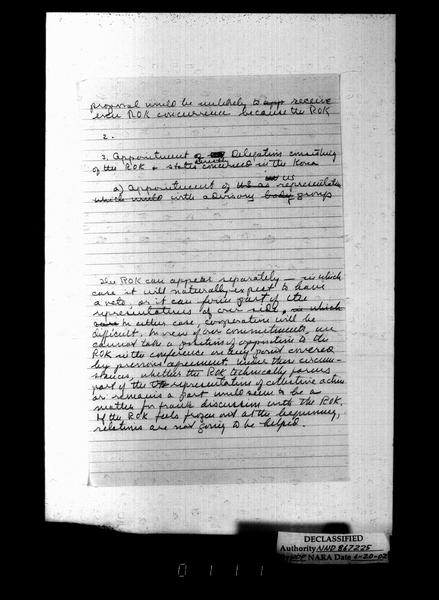 proposal would be unlikely to app receive
even ROK concurrence because the ROK
2.
3. Appointment of Delegation consisting
of the ROK & states directly concerned in the Korea
a) Appointment of US as representative
US
which would with advisory body group
The ROK can appear separately — in which
case it will naturally expect to have
a veto, or it can form part of the
representatives of our side, in which
case In either case, cooperation will be
difficult. In view of our commitments, we
cannot take a position of opposition to the
ROK in the conference on any point covered
by previous agreement. Under these circum-
stances, whether the ROK technically forms
part of the representation of collective action
or remains a part would seem to be a
matter for frank discussion with the ROK.
If the ROK feels frozen out at the beginning,
relations are not going to be helped.
DECLASSIFIED
Authority NND 867225
NARA Date 6-20-02
0111